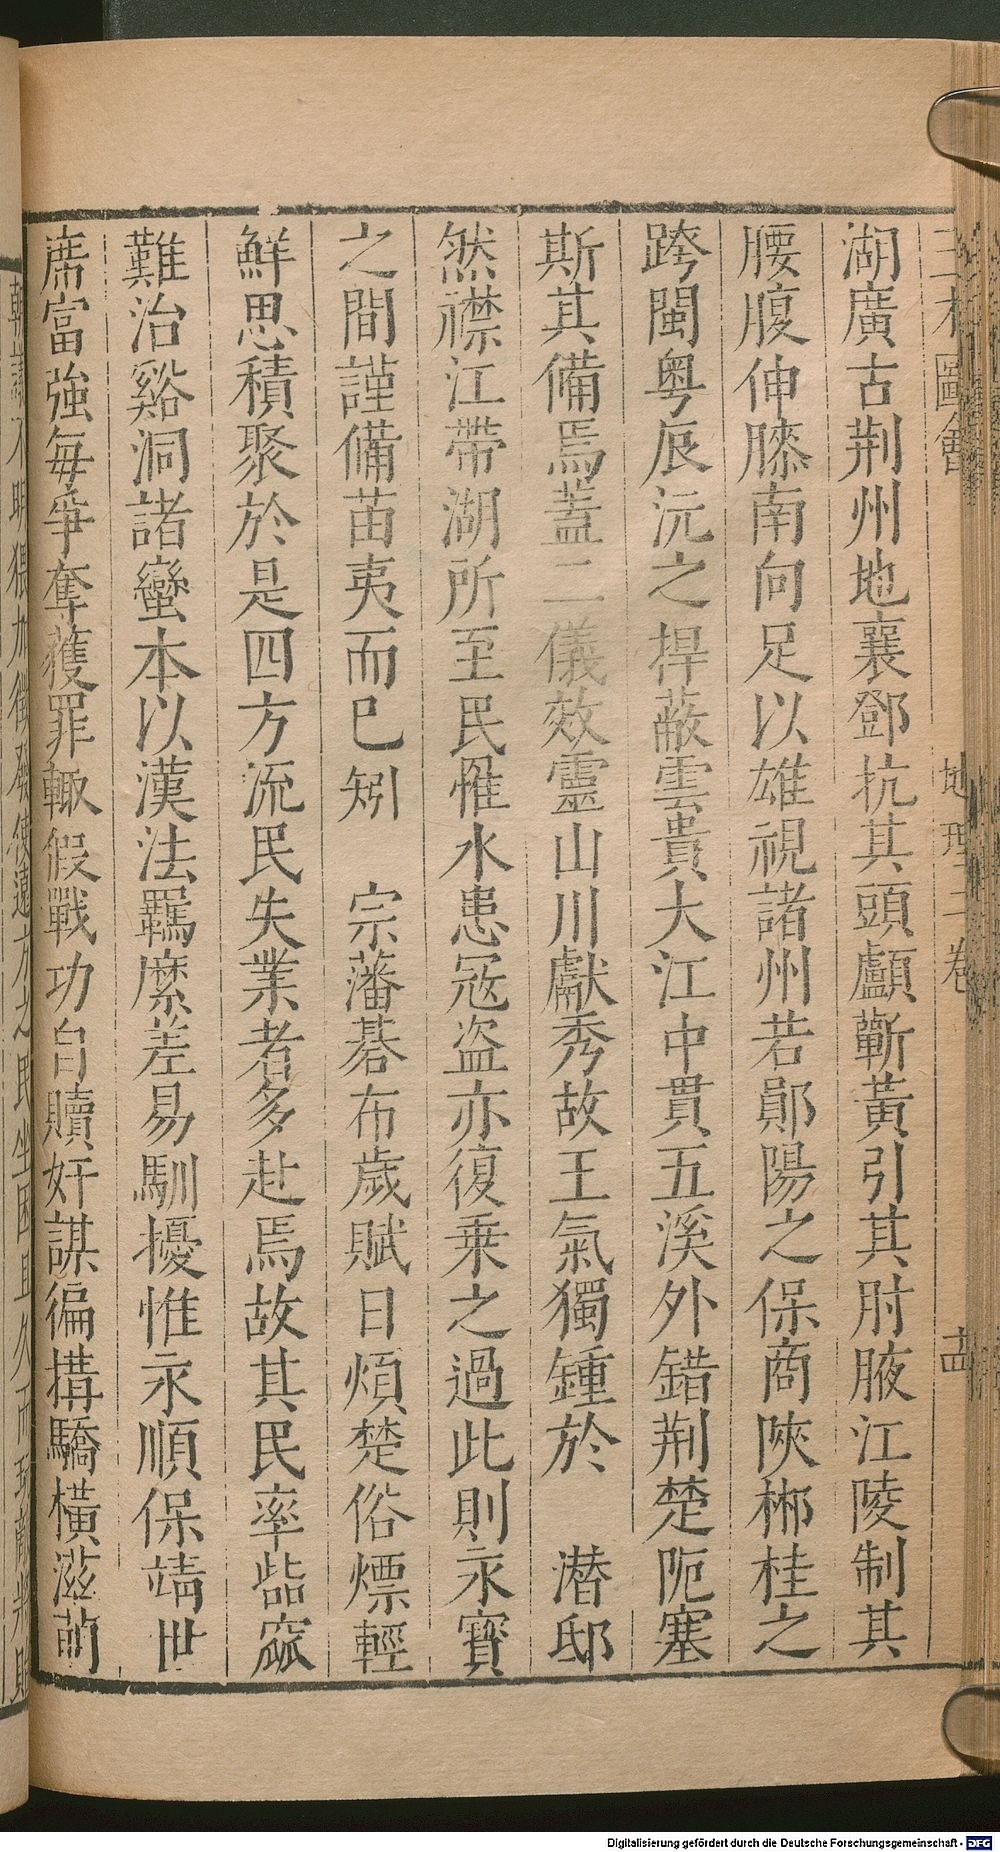 湖廣古荆州地襄鄧抗其頭顱蘄黃引其肘腋江陵制其
腰腹伸膝南向足以雄視諸州若鄖陽之保商陜郴桂之
跨閩粤辰沅之捍蔽雲貴大江中貫五溪外錯荆楚阨塞
斯其備焉蓋二儀效靈山川獻秀故王氣獨鍾於　潜邸
然襟江帶湖所至民罹水患冦盗亦復乗之過此則永寳
之間謹備苗夷而已矧　宗藩碁布歲賦日煩楚俗慓輕
鮮思積聚於是四方流民失業者多赴焉故其民率呰窳
難治谿洞諸蠻本以漢法羈縻差易馴擾惟永順保靖世
席富強每爭奪獲罪輙假戰功自贖奸謀徧搆驕橫滋萌
地理二卷
Digitalisierung gefördert durch die Deutsche Forschungsgemeinschaft - DFG